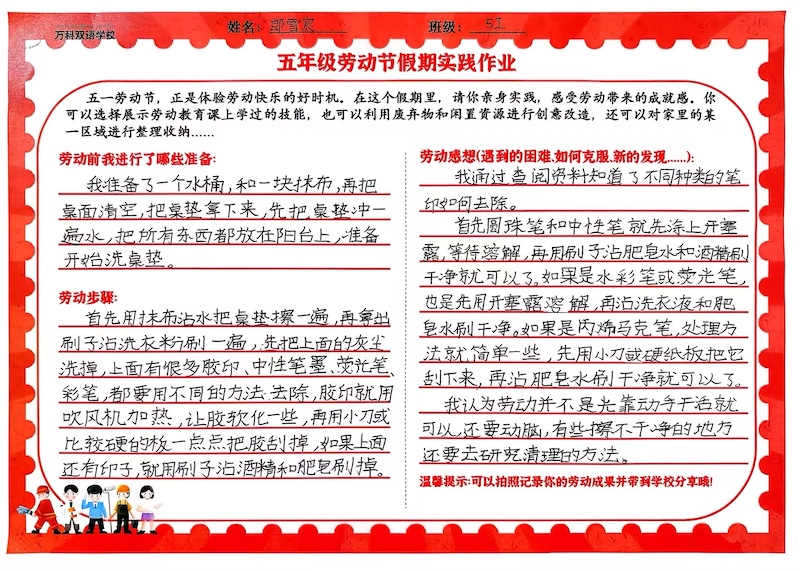 万科双语学校
姓名: 郎雪宸 班级: 51
五年级劳动节假期实践作业
五一劳动节，正是体验劳动快乐的好时机。在这个假期里，请你亲身实践，感受劳动带来的成就感。你
可以选择展示劳动教育课上学过的技能，也可以利用废弃物和闲置资源进行创意改造，还可以对家里的某
一区域进行整理收纳……
劳动前我进行了哪些准备:
我准备了一个水桶,和一块抹布,再把
桌面清空,把桌垫拿下来,先把桌垫冲一
遍水,把所有东西都放在阳台上,准备
开始洗桌垫。
劳动步骤:
首先用抹布沾水把桌垫擦一遍,再拿出
刷子沾洗衣粉刷一遍,先把上面的灰尘
洗掉,上面有很多胶印、中性笔墨、荧光笔、
彩笔,都要用不同的方法去除,胶印就用
吹风机加热,让胶软化一些,再用小刀或
比较硬的板一点点把胶刮掉,如果上面
还有印子,就用刷子沾酒精和肥皂刷掉。
劳动感想(遇到的困难、如何克服、新的发现……):
我通过查阅资料知道了不同种类的笔
印如何去除。
首先圆珠笔和中性笔就先涂上开塞
露,等待溶解,再用刷子沾肥皂水和酒精刷
干净就可以了。如果是水彩笔或荧光笔,
也是先用开塞露溶解,再沾洗衣液和肥
皂水刷干净。如果是丙烯马克笔,处理方
法就简单一些,先用小刀或硬纸板把它
刮下来,再沾肥皂水刷干净就可以了。
我认为劳动并不是光靠动手干活就
可以,还要动脑,有些擦不干净的地方
还要去研究清理的方法。
温馨提示:可以拍照记录你的劳动成果并带到学校分享哦!